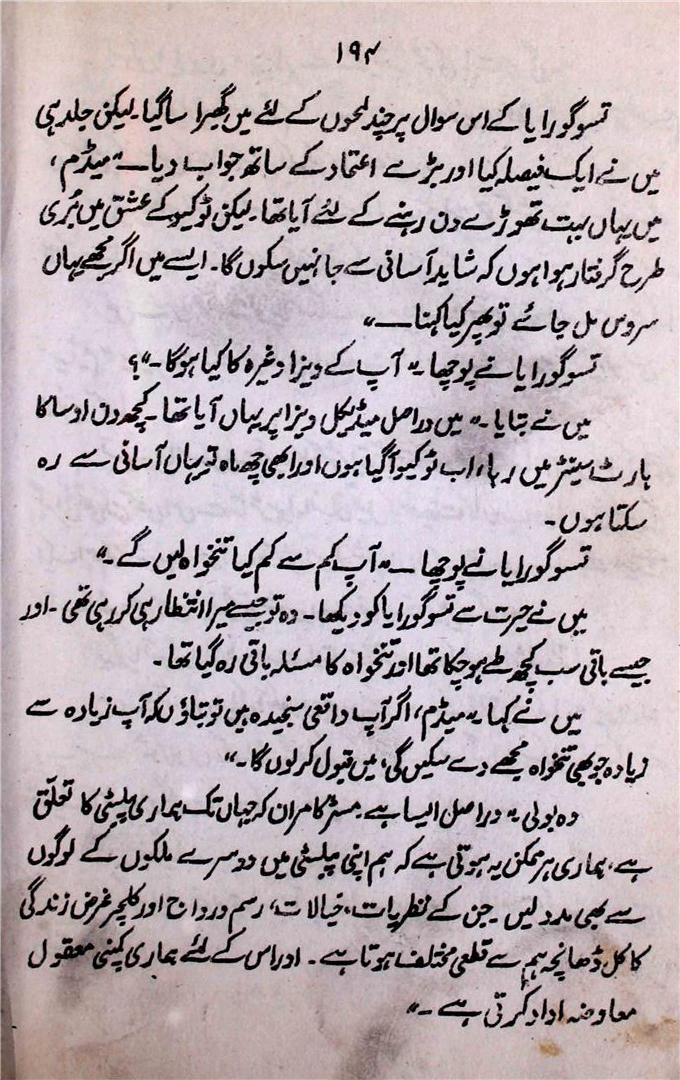 ۱۹۴
تسوگورایا کے اس سوال پر چند لمحوں کے لئے میں گھبرا سا گیا۔ لیکن جلد ہی
میں نے ایک فیصلہ کیا اور بڑے اعتماد کے ساتھ جواب دیا — " میڈم ،
میں یہاں بہت تھوڑے دن رہنے کے لئے آیا تھا۔ لیکن ٹوکیو کے عشق میں بُری
طرح گرفتار ہوا ہوں کہ شاید آسانی سے جا نہیں سکوں گا۔ ایسے میں اگر مجھے یہاں
سروس مل جائے تو پھر کیا کہنا —"
تسوگورایا نے پوچھا۔" آپ کے ویزا وغیرہ کا کیا ہوگا۔"؟
میں نے بتایا۔" میں دراصل میڈیکل ویزا پر یہاں آیا تھا۔ کچھ دن اوساکا
ہارٹ سینٹر میں رہا، اب ٹوکیو آگیا ہوں اور ابھی چھ ماہ تو یہاں آسانی سے رہ
سکتا ہوں۔
تسوگورایا نے پوچھا —" آپ کم سے کم کیا تنخواہ لیں گے۔"
میں نے حیرت سے تسوگورایا کو دیکھا۔ وہ تو جیسے میرا انتظار ہی کر رہی تھی۔ اور
جیسے باقی سب کچھ طے ہو چکا تھا اور تنخواہ کا مسئلہ باقی رہ گیا تھا۔
میں نے کہا " میڈم، اگر آپ واقعی سنجیدہ ہیں تو بتاؤں کہ آپ زیادہ سے
زیادہ جو بھی تنخواہ مجھے دے سکیں گی، میں قبول کر لوں گا۔"
وہ بولی " دراصل ایسا ہے مسٹر کامران کہ جہاں تک ہماری پبلسٹی کا تعلّق
ہے، ہماری ہر ممکن یہ ہوتی ہے کہ ہم اپنی پبلسٹی میں دوسرے ملکوں کے لوگوں
سے بھی مدد لیں۔ جن کے نظریات، خیالات، رسم و رواج اور کلچر غرض زندگی
کا کل ڈھانچہ ہم سے قطعی مختلف ہوتا ہے۔ اور اس کے لئے ہماری کمپنی معقول
معاوضہ ادا کرتی ہے۔"